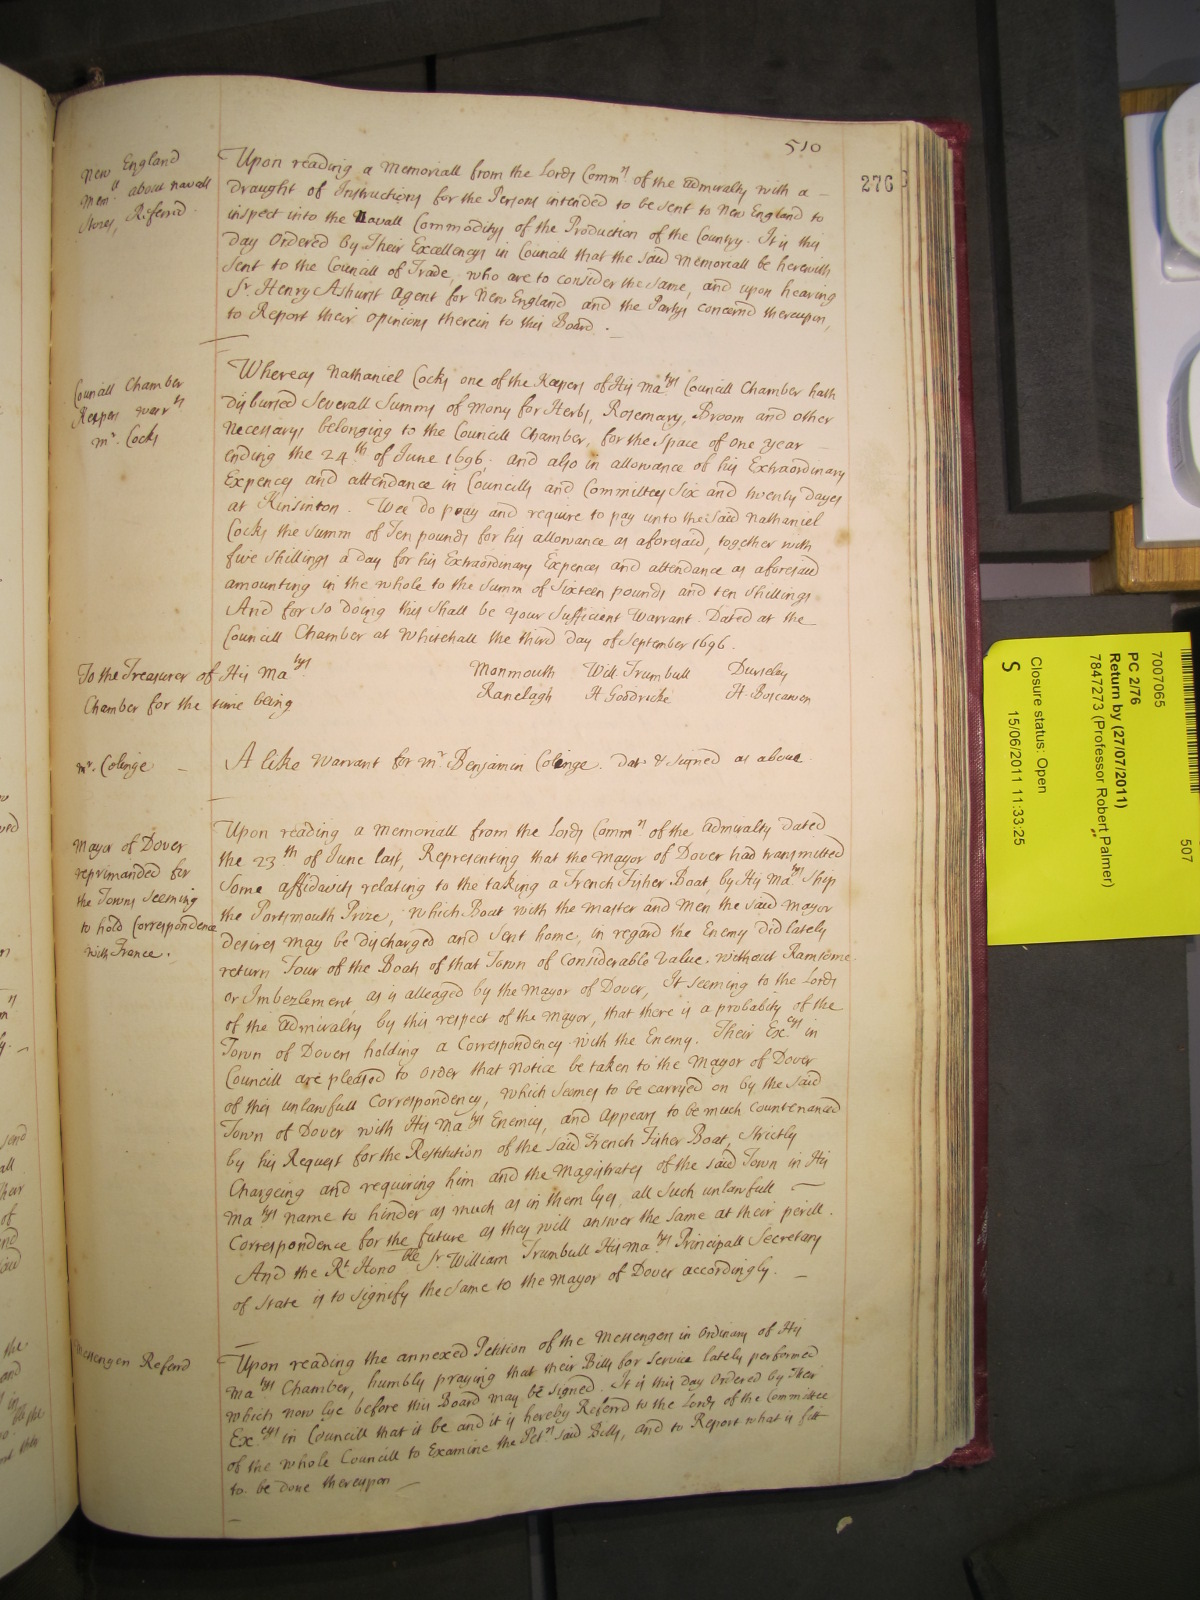 510
276
New England
Mem.ll about navall
Stores, Referrd.
Upon reading a Memoriall from the Lords Comm.rs of the Admiralty with a
draught of Instructions for the Persons intended to be sent to New England to
inspect into the Navall Commoditys of the Production of the Country. It is this
day Ordered by Their Excellencys in Councill that the said Memoriall be herewith
sent to the Councill of Trade, who are to consider the same, and upon hearing
Sr. Henry Ashurst Agent for New England and the Partys concernd thereupon,
to Report their opinions therein to this Board.
Councill Chamber
Keepers warr.ts
mr. Cocks
Whereas Nathaniel Cocks one of the Keepers of His Ma.tys Councill Chamber hath
disbursed Severall Summs of mony for Herbs, Rosemary, Broom and other
necessarys belonging to the Councill Chamber, for the Space of one year
ending the 24th of June 1696. and also in allowance of his Extraordinary
Expences and attendance in Councills and Committees Six and twenty Dayes
at Kinsinton. Wee do pray and require to pay unto the said Nathaniel
Cocks the summ of Ten pounds for his allowance as aforesaid, together with
five shillings a day for his Extraordinary Expences and attendance as aforesaid
amounting in the whole to the summ of Sixteen pounds and ten shillings
And for so doing this shall be your Sufficient Warrant. Dated at the
Councill Chamber at Whitehall the third day of September 1696.
To the Treasurer of His Ma.tys
Chamber for the time being
Monmouth Will. Trumbull Dursley
Ranelagh H Goodricke H. Boscawen
mr. Colinge
A like Warrant for mr. Benjamin Colinge. Dat. & signed as above.
Mayor of Dover
reprimanded for
the Towns seeming
to hold Correspondence
with France.
Upon reading a Memoriall from the Lords Comm.rs of the Admiralty dated
the 23th of June last, Representing that the Mayor of Dover had transmitted
Some affidavits relating to the taking a French Fisher Boat, by His Ma.tys Ship
the Portsmouth Prize, which Boat with the Master and Men the said Mayor
desires may be discharged and sent home, in regard the Enemy did lately
return Four of the Boats of that Town of Considerable Value, without Ransome
or Imbezlement, as is alleaged by the Mayor of Dover, It seeming to the Lords
of the Admiralty by this respect of the Mayor, that there is a probabity of the
Town of Dovers holding a Correspondency with the Enemy. Their Ex.cys in
Councill are pleased to order that notice be taken to the Mayor of Dover
of this unlawfull Correspondency, which seemes to be carryed on by the said
Town of Dover with His Ma.tys Enemies, and Appears to be much countenanced
by his Request for the Restitution of the said French Fisher Boat, Strictly
Chargeing and requiring him and the Magistrates of the said Town in His
Ma.tys name to hinder as much as in them lyes, all such unlawfull
Correspondence for the future as they will answer the same at their perill.
And the Rt. Honoble Sr. William Trumbull His Ma.tys Principall Secretary
of State is to signify the same to the Mayor of Dover accordingly.
Messengers Referrd
Upon reading the annexed Petition of the Messengers in Ordinary of His
Ma.tys Chamber, humbly praying that their Bills for service lately performed
which now lye before this Board may be signed. It is this Day Ordered by Their
Ex.cys in Councill that it be and it is hereby Referrd to the Lords of the Committee
of the whole Councill to Examine the Pet.rs said Bills, and to Report what is fitt
to be done thereupon
7007065
507
PC 2/76
Return by (27/07/2011)
7847273 (Professor Robert Palmer)
Closure status: Open
S 15/06/2011 11:33:25